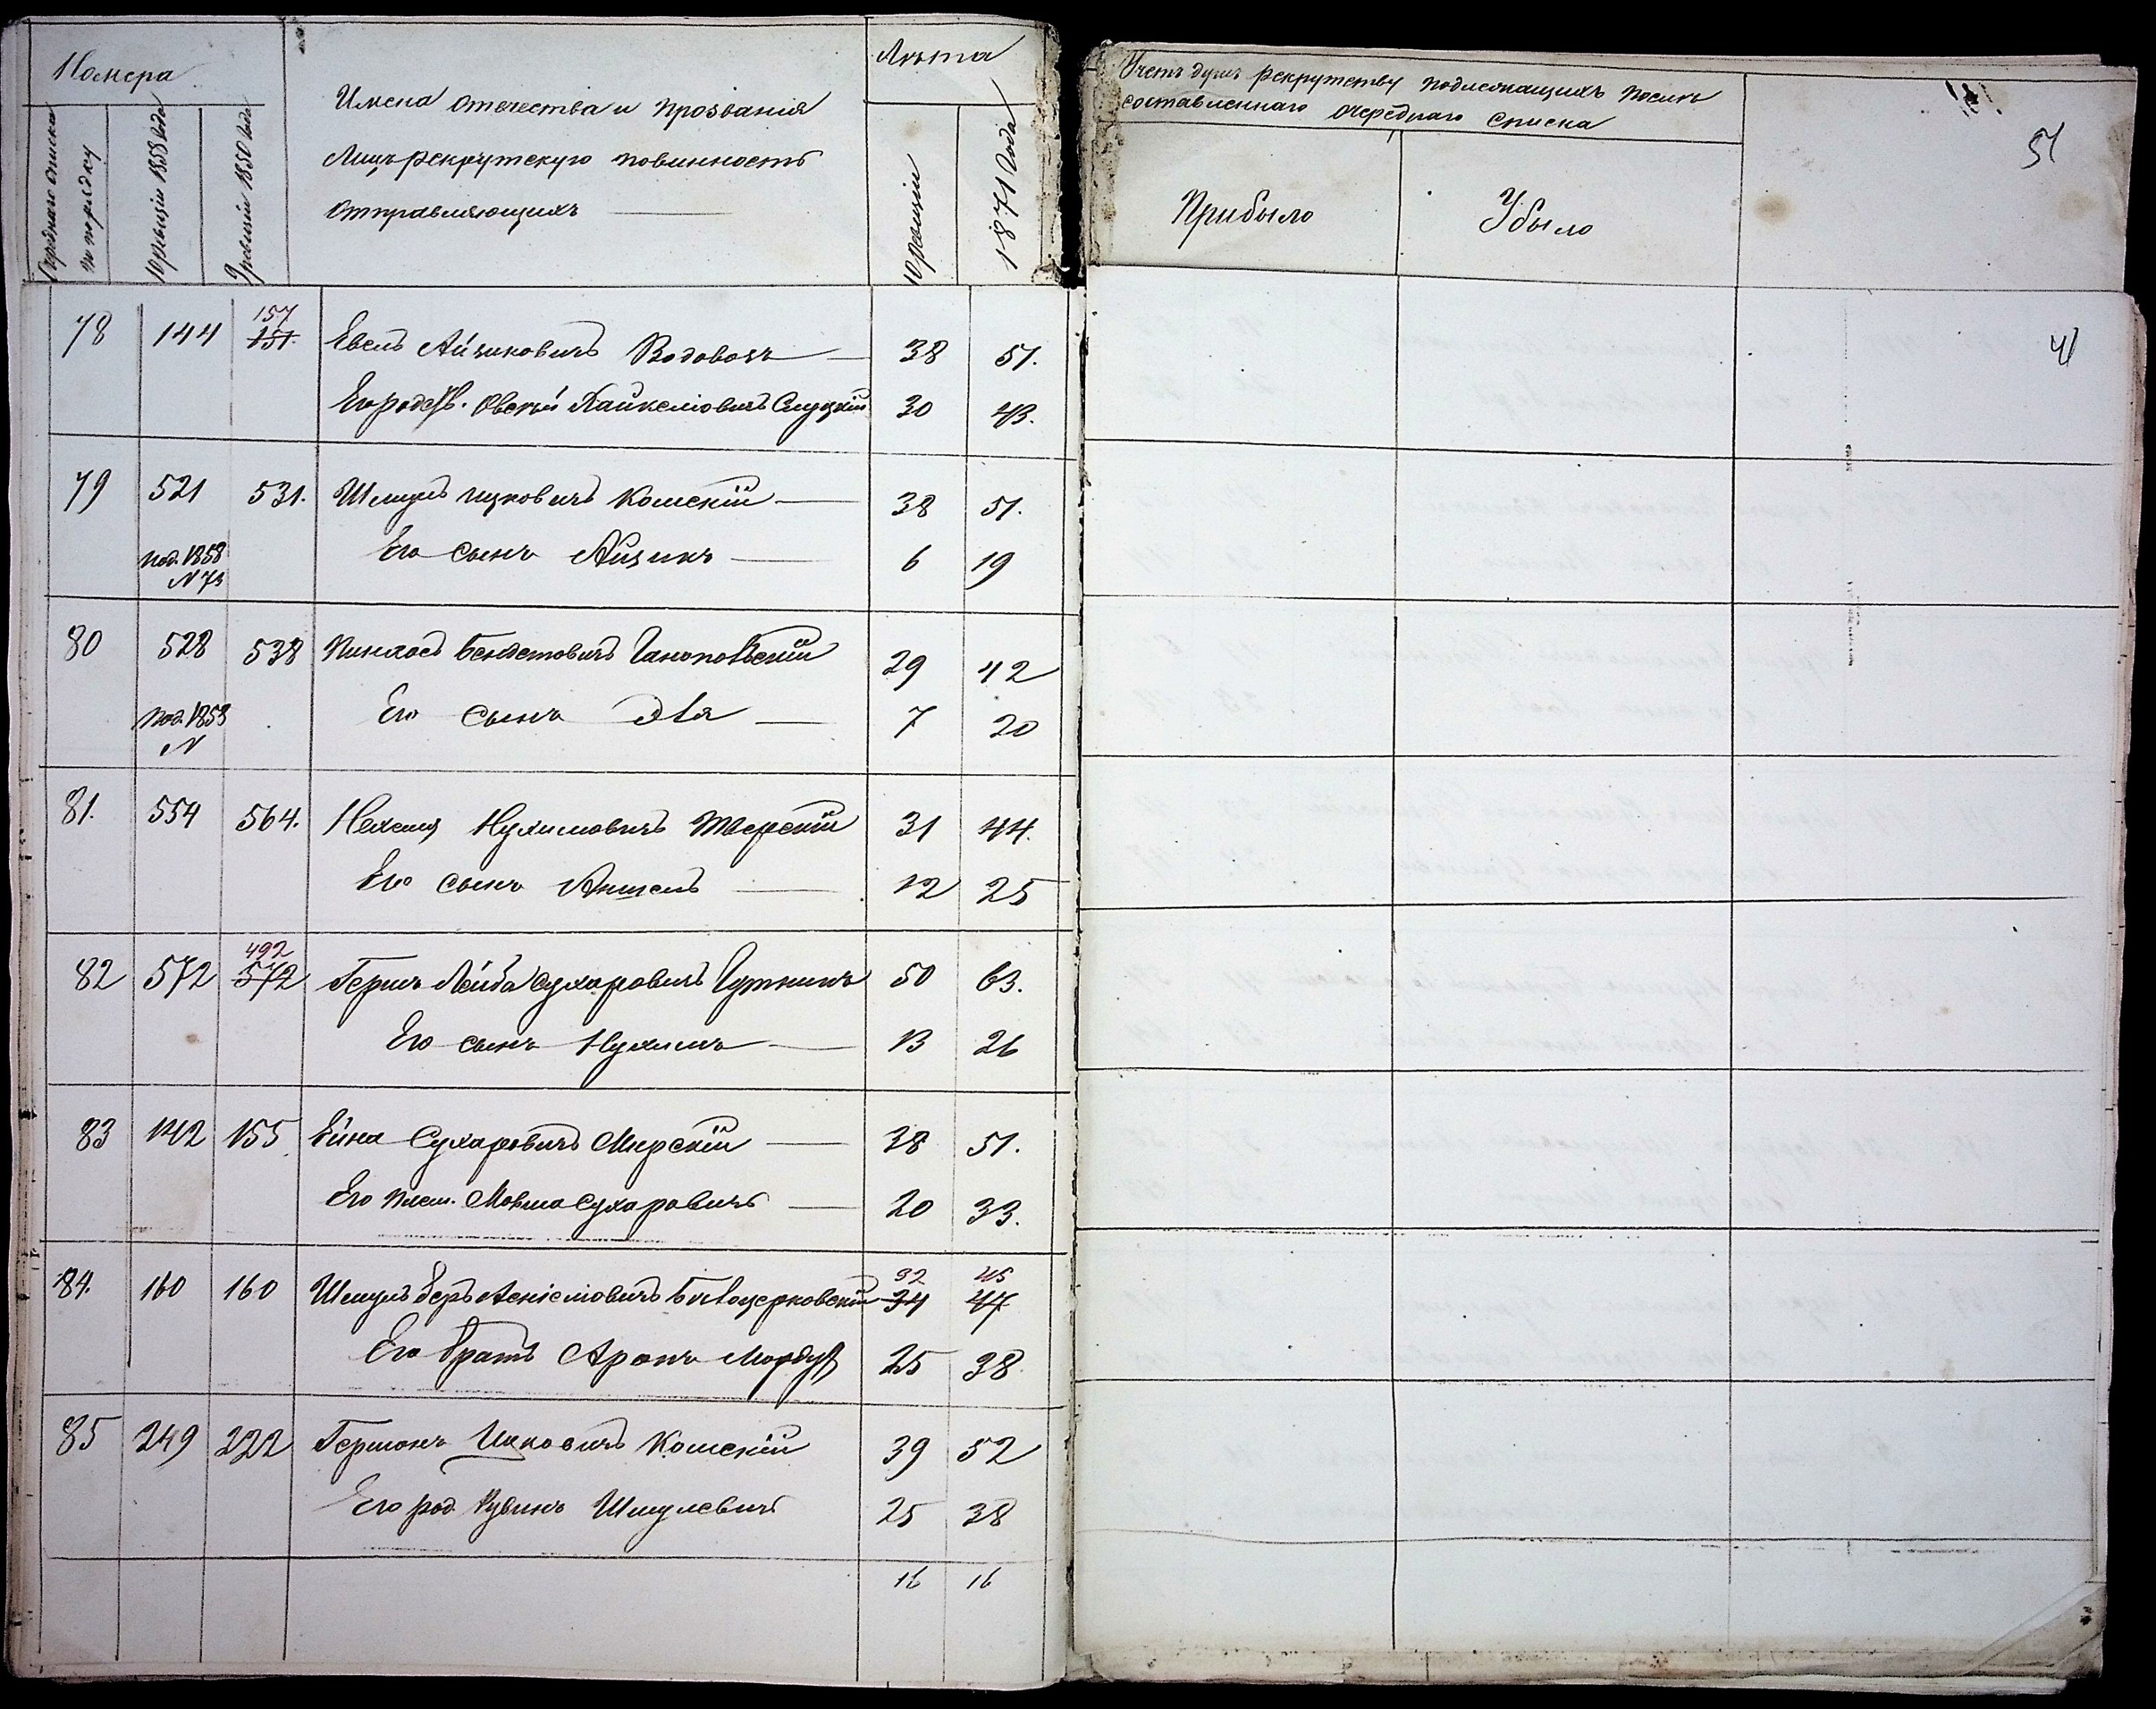 Номера
Очереднаго списка по порядку
10 ревизіи 1858 года
9 ревизіи 1850 года
Имена отечества и прозванія
Лицъ рекрутскую повинность
отправляющихъ
Лѣта
10 ревизіи
1871 года
Учетъ душъ рекрутству подлежащихъ послѣ
составленнаго очереднаго списка
Прибыло
Убыло
51
41
157
78 144 151. Евель Айзиковичъ Водовозъ 38 51.
Его родств. Овсей Хайкеліовичъ Слуцкій 30 43.
79 521 531. Шмуль Ицковичъ Комскій 38 51.
под. 1858 Его сынъ Айзикъ 6 19
N 73
80 528 538 Пинхосъ Бендетовичъ Ганопольскій 29 42
под. 1858 Его сынъ Эля 7 20
N
81. 554 564. Нехемя Нухимовичъ Тверскій 31 44.
Его сынъ Аншель 12 25
492
82 572 572 Гершъ Лейба Сухаровичъ Гуткинъ 50 63.
Его сынъ Нухимъ 13 26
83 142 155 Ейна Сухаровичъ Мирскій 38 51.
Его плем. Мовша Сухаровичъ 20 33.
32 45
84. 160 160 Шмуль Беръ Бѣлоцерковскій 34 47
Его братъ Аронъ Мордух 25 38
85 249 222 Гершонъ Ицковичъ Комскій 39 52
Его род. Рувинъ Шмулевичъ 25 38
16 16